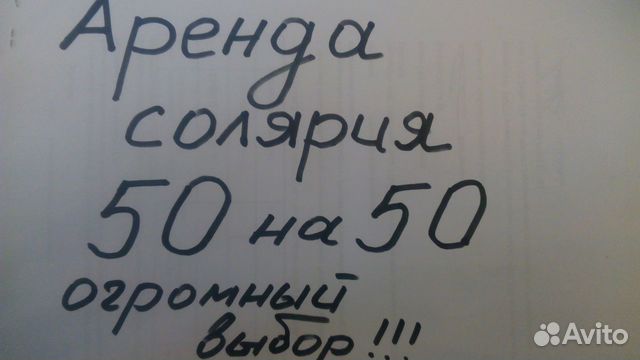 Аренда
солярия
50 на 50
огромный
выбор!!!
Avito